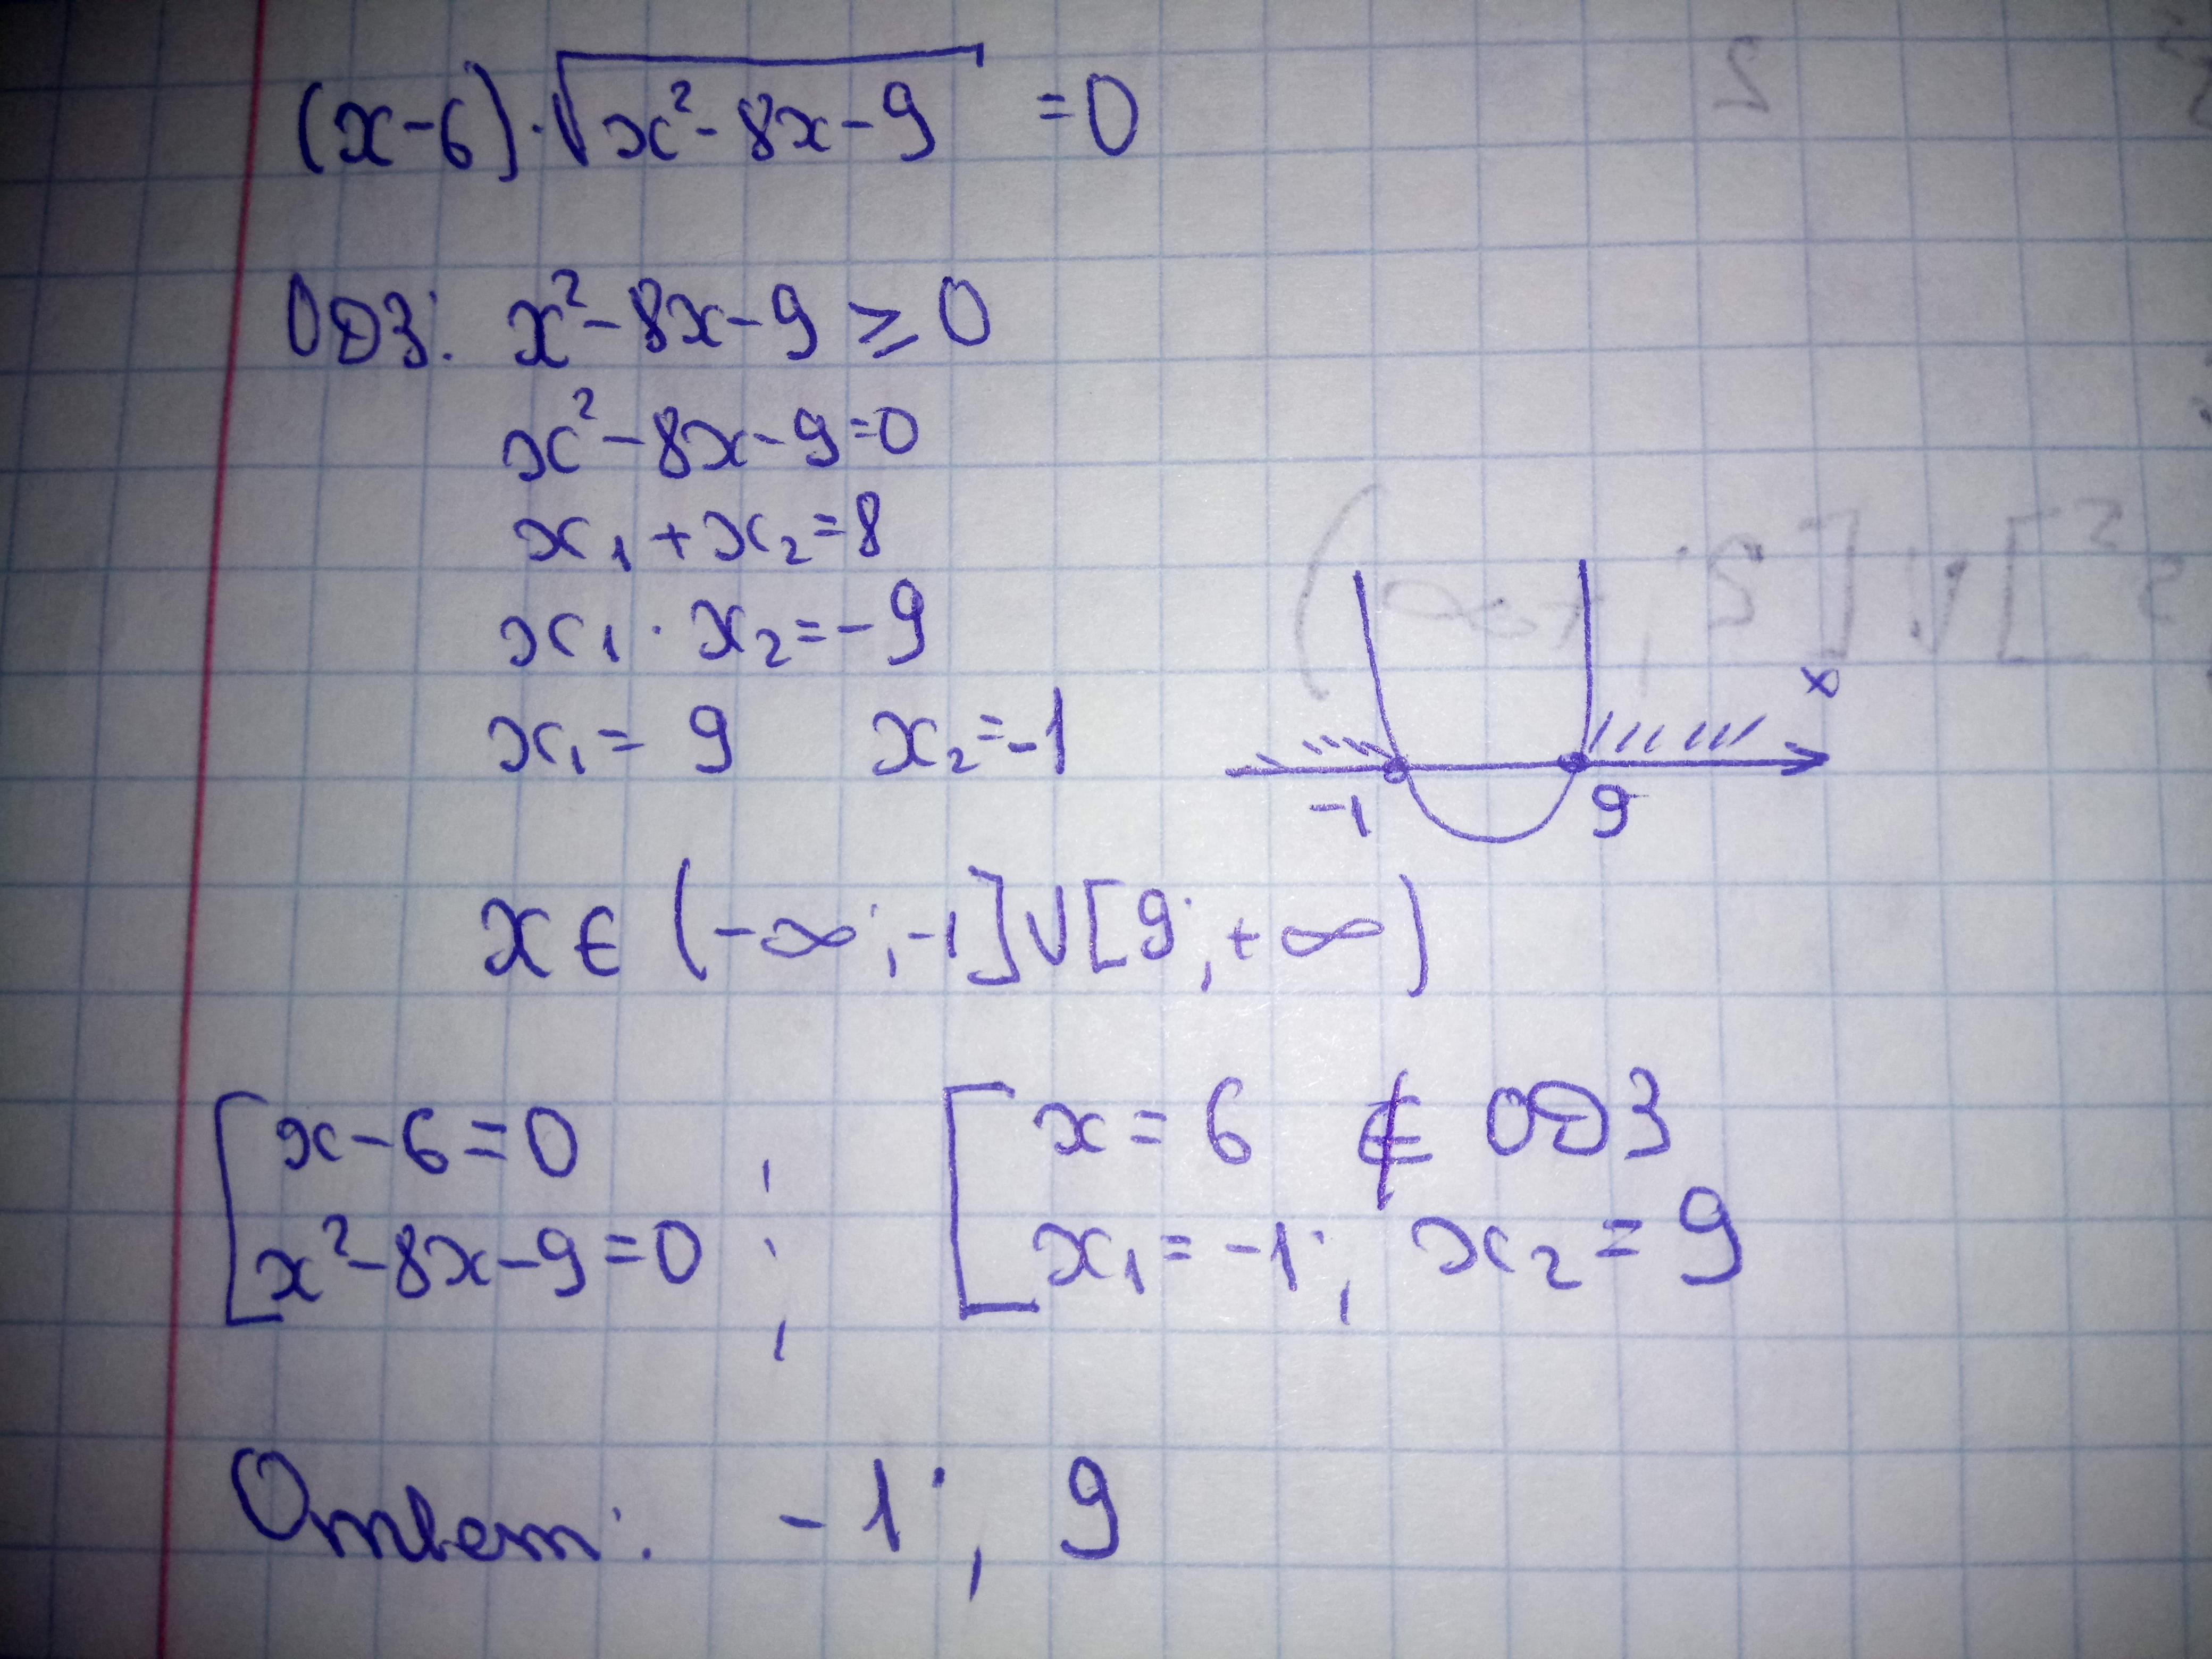 (x-6)·√(x²-8x-9) =0
ОДЗ: x²-8x-9 ≥ 0
x²-8x-9=0
x₁+x₂=8
x₁·x₂=-9
x₁= 9 x₂=-1
x
-1 9
x∈(-∞;-1]∪[9;+∞)
[x-6=0 ; [x= 6 ∉ ОДЗ
x²-8x-9=0 ; x₁=-1; x₂=9
Ответ: -1; 9